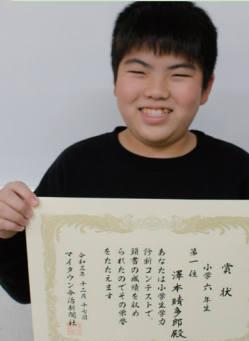 賞状
小学六年生
第一位
澤本晴多郎殿
あなたは小学生学力
診断コンテストで、
頭書の成績を収め
られたのでその栄誉
をたたえます
令和三年十二月十七日
マイタウン今治新聞社